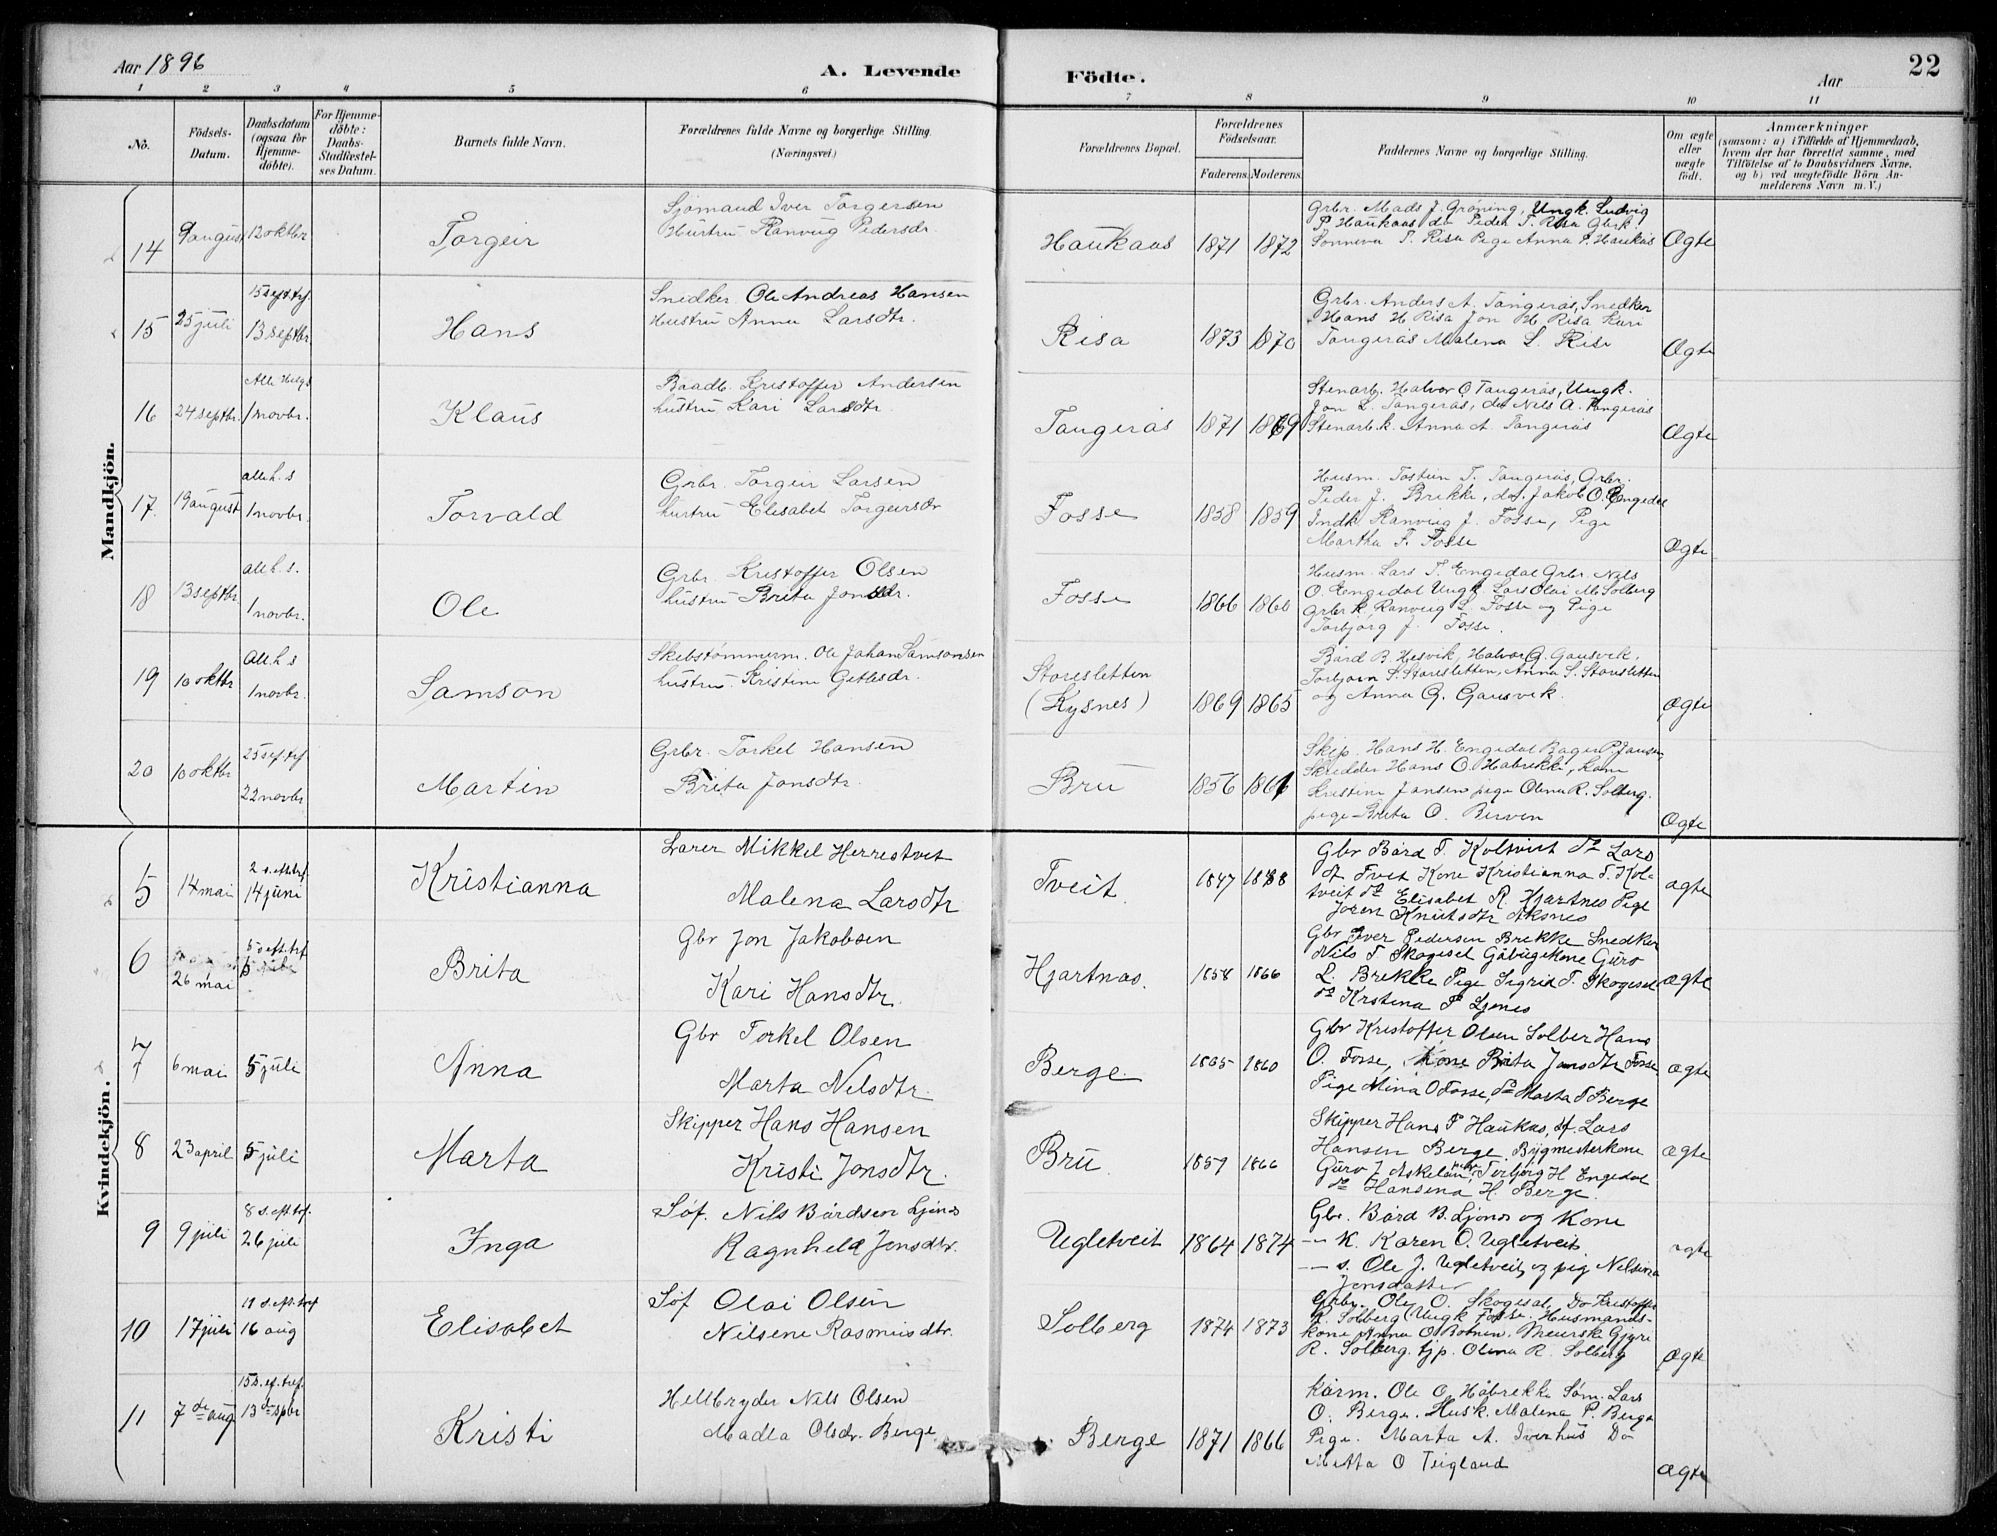 Aar 1896
A. Levende
Födte.
Aar
22
1 2 3 4 5 6 7 8 9 10 11
No.
Födsels-Datum.
Daabsdatum (ogsaa for Hjemme-döbte).
For Hjemme-döbte: Daabs-Stadfæstel-ses Datum.
Barnets fulde Navn.
Forældrenes fulde Navne og borgerlige Stilling.
(Næringsvei.)
Forældrenes Bopæl.
Forældrenes Födselsaar.
Faderens. Moderens.
Faddernes Navne og borgerlige Stilling.
Om ægte eller uægte födt.
Anmærkninger
(saasom: a) i Tilfælde af Hjemmedaab,
hvem der har forrettet samme, med
Tilföielse af to Daabsvidners Navne,
og b) ved uægtefödte Börn An-
melderens Navn m. V.)
Mandkjön.
14 9 august 12 oktbr Torgeir
Sjömand Iver Torgersen
Hustru Ranveig Pedersdr
Haukaas 1871 1872
Grbr. Mads J. Gröning, Ungk. Ludvig
P. Haukaas do Peder T. Risa Gbrk.
Sönneva T. Risa Pige Anna P. Haukås
Ægte
15 25 juli 15 s. eft. trf. 13 septbr. Hans
Snedker Ole Andreas Hansen
Hustru Anna Larsdtr.
Risa 1873 1870
Grbr. Anders A. Tangerås, Snedker
Hans H Risa Jon H. Risa Kari
Tangerås Malena L. Risa
Ægte
16 24 septbr. Alle Helgs 1 novbr. Klaus
Baadb. Kristoffer Andersen
hustru Kari Larsdtr.
Tangerås 1871 1869
Stenarb. Halvor O Tangerås, Ungk.
Jon L. Tangerås, do Nils A. Tangerås
Stenarb. k. Anna A. Tangerås
Ægte
17. 19 august alle h. s 1 novbr. Torvald
Grbr. Torgeir Larsen
hustru Elisabet Torgeirsdr
Fosse 1858 1859
Husm. Tostein T. Tangerås, Grbr.
Peder J. Brekke, do. Jakob O. Engedal
Indk. Ranveig J. Fosse, Pige
Martha T. Fosse
Ægte
18 13 septbr alle h. s. 1 novbr. Ole
Grbr. Kristoffer Olsen
hustru Brita Jonsdr.
Fosse 1866 1860
Husm. Lars T. Engedal Grbr. Nils
O. Engedal Ungk. Lars Olai M. Solberg
Grbr k. Ranveig L. Fosse og Pige
Torbjörg J. Fosse.
19 10 oktbr alle h. s 1 novbr. Samson
Skibstømmerm. Ole Johan Samsonsen
hustru. Kristine Gitlesdr.
Storesletten
(Kysnes) 1869 1865
Bård B. Hesvik, Halvor G. Gausvik,
Torbjörn S. Storesletten, Anna S. Storesletten
og Anna G. Gausvik.
Ægte
20 10 oktbr 25 s ef. trf 22 novbr Martin
Grbr. Torkel Hansen
Brita Jonsdtr.
Bru 1856 1861
Skip. Hans H. Engedal Bager P. Jansen,
Skredder Hans O. Håbrekke, kone
Kristine Jansen pige Olena R. Solberg.
pige Brita O. Berven
Ægte
Kvindekjön.
5 14 mai 2 s. eft. trf. 14 juni Kristianna
Lærer Mikkel Herrestvet
Malena Larsdtr
Tveit. 1847 1858
Gbr Bård T. Koltveit do Lars
Tveit Kone Kristianna T. Kol-
tveit do Elisabet R. Hjartnes Pige
Joren Knutsdtr Aksnes
ægte
6 26 mai 5 s eft. trf Brita
Gbr Jon Jakobsen
Kari Hansdtr.
Hjartnas. 1858 1866
Gbr Iver Pedersen Brekke Snedker
Nils T Skogesel Gårbrugekone Guro
L. Brekke Pige Sigrid T. Skogesel
do Krstena P Ljones
ægte
7 6 mai 5 juli Anna
Gbr Torkel Olsen
Marta Nelsdtr.
Berge 1865 1860
Gbr Kristoffer Olsen Solber Hans
O. Fosse, Kone Brita Jonsdtr Fosse
Pige Mina O Fosse, do Marta T Berge
ægte
8 23 april 5 juli Marta
Skipper Hans Hansen
Kristi Jonsdtr.
Bru 1857 1866
Skipper Hans P Haukas, Lars
Hansen Berge. Bygmesterkone
Guro J Askeland, Torbjörg H Engedal
do Hansena H. Berge.
ægte
9 9 juli 8 s. eft. tref. 26 juli Inga
Søf. Nils Bårdsen Ljönes
Ragnheld Jonsdtr.
Ugletveit 1864 1874
Gbr. Bård B. Ljones og Kone
— " — K. Karen O. Ugletveit
— " — s. Ole J. Ugletveit, og pig Nelsina
Jonsdatter
ægte
10 17 juli 11 s. eft. tref 16 aug Elisabet
Søf Olai Olsen
Nilsene Rasmusdtr.
Solberg 1874 1873
Grbr. Ole O. Skogesal, Do Kristoffer
R. Solberg Ungk Fosse. Husmands-
kone Anna O. Botnen. Meierske Gjyri
R. Solberg. tjp. Olena R. Solberg
Ægte
11 7de aug 15 s. ef. tref. 13de spbr Kristi
Hellbryder Nils Olsen
Madla Olsdr. Berge
Berge 1871 1866
Kårm. Ole O. Håbrekke Søm. Lars
O. Berge. Husk. Malena P. Berge
Pige. Marta A. Iverhus Do
Metta O Teigland
ægte